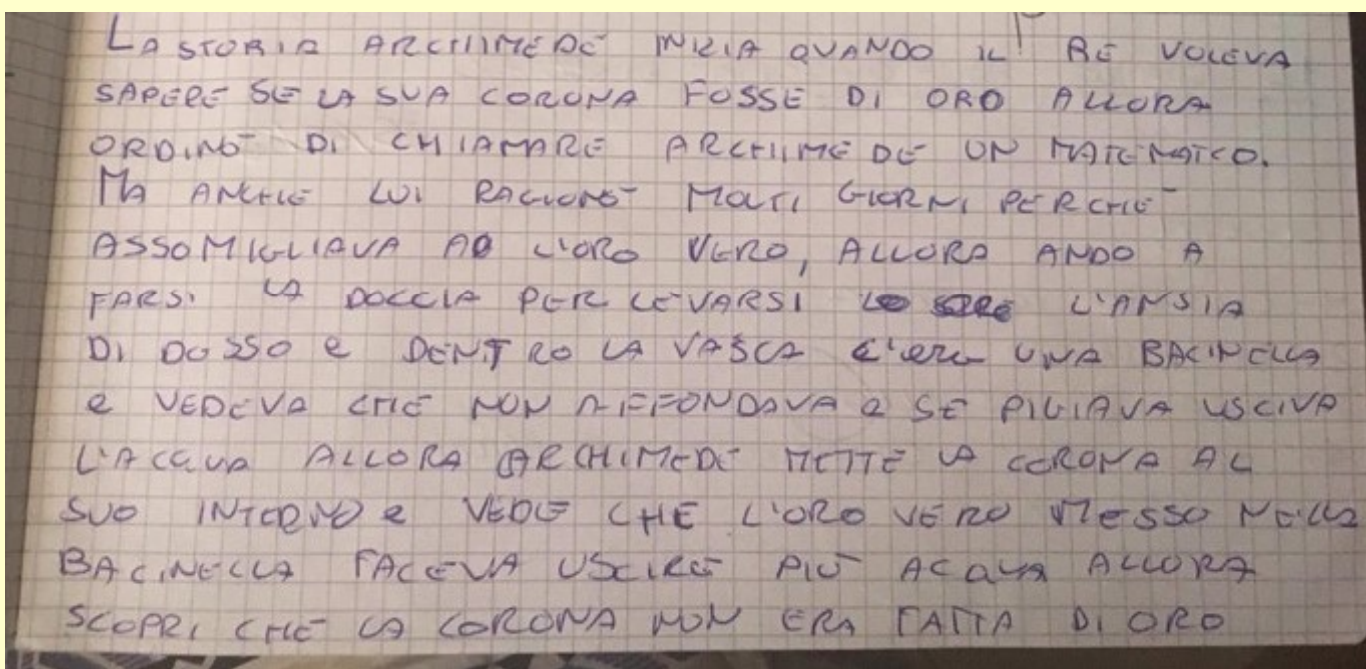 LA STORIA ARCHIMEDE INIZIA QUANDO IL RE VOLEVA
SAPERE SE LA SUA CORONA FOSSE DI ORO ALLORA
ORDINÒ DI CHIAMARE ARCHIMEDE UN MATEMATICO.
MA ANCHE LUI RAGIONÒ MOLTI GIORNI PERCHÉ
ASSOMIGLIAVA AD L'ORO VERO, ALLORA ANDO A
FARSI LA DOCCIA PER LEVARSI L'ANSIA
DI DOSSO e DENTRO LA VASCA C'era UNA BACINELLA
e VEDEVA CHE NON AFFONDAVA e SE PIGIAVA USCIVA
L'ACQUA ALLORA ARCHIMEDE METTE LA CORONA AL
SUO INTERNO e VEDE CHE L'ORO VERO MESSO NELLA
BACINELLA FACEVA USCIRE PIÙ ACQUA ALLORA
SCOPRI CHE LA CORONA NON ERA FATTA DI ORO